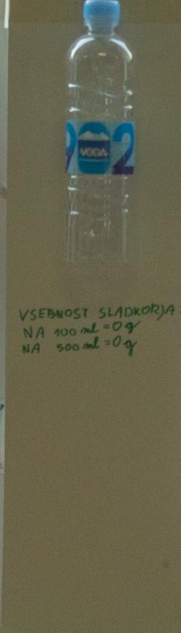 902
VODA
VSEBNOST SLADKORJA:
NA 100 ml = 0 g
NA 500 ml = 0 g